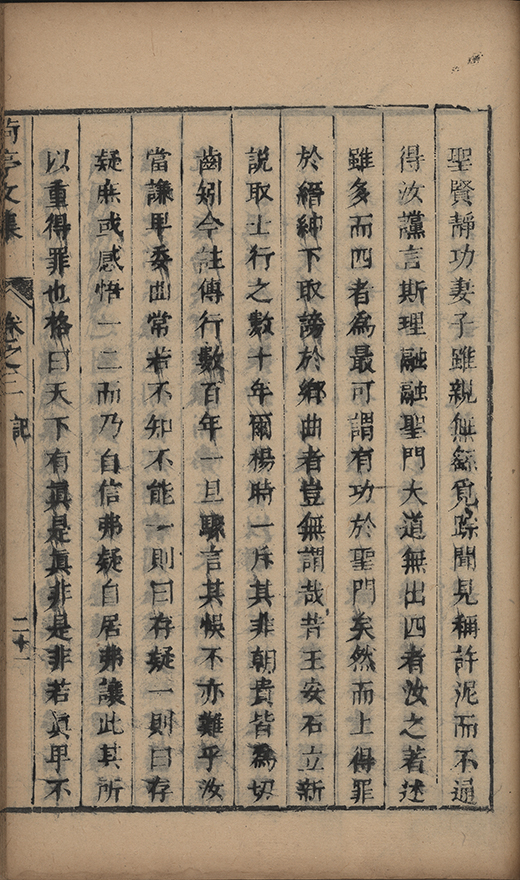 聖賢靜功妻子雖親無繇覓踪聞見稱許泥而不通
得汝讜言斯理融融聖門大道無出四者汝之著述
雖多而四者爲最可謂有功於聖門矣然而上得罪
於縉紳下取謗於鄉曲者豈無謂哉昔王安石立新
說取士行之數十年爾楊時一斥其非朝貴皆爲切
齒矧今註傳行數百年一旦驟言其悞不亦難乎汝
當謙卑委曲常若不知不能一則曰存疑一則曰存
疑庶或感悟一二而乃自信弗疑自居弗讓此其所
以重得罪也格曰天下有眞是眞非是非若眞卑不
荷亭文集 卷之二 記 二十一